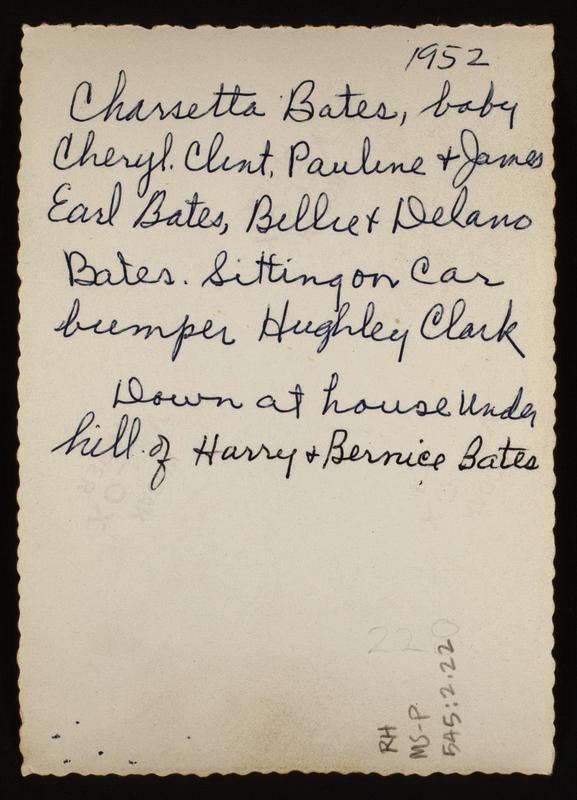 1952
Charsetta Bates, baby
Cheryl. Clint, Pauline + James
Earl Bates, Billie + Delano
Bates. Sitting on Car
bumper Hughley Clark
Down at house Under
hill of Harry + Bernice Bates
220
RH
MS-P
545:2.220